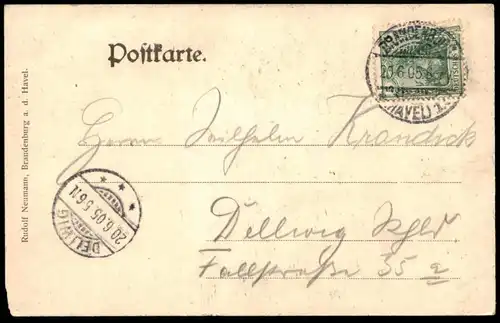 Postkarte.
BRANDENBURG
20.6.05.
(HAVEL) 1.
Herrn Wilhelm Krandick
DELLWIG
20.6.05.5-6N
Dellwig
Fallstraße 55 a
Rudolf Neumann, Brandenburg a. d. Havel.